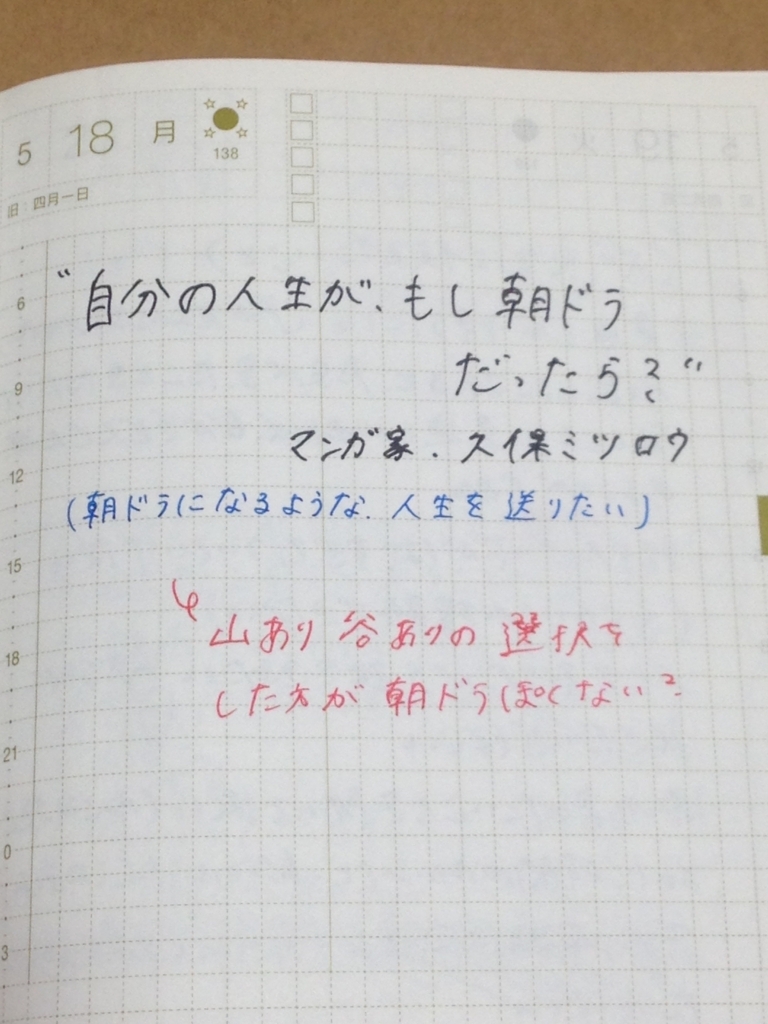 5 18 月
138
旧 四月一日
6
"自分の人生が、もし朝ドラ
だったら?"
9
マンガ家.久保ミツロウ
12
(朝ドラになるような.人生を送りたい)
15
山あり谷ありの選択を
18
した方が朝ドラぽくない?
21
0
3